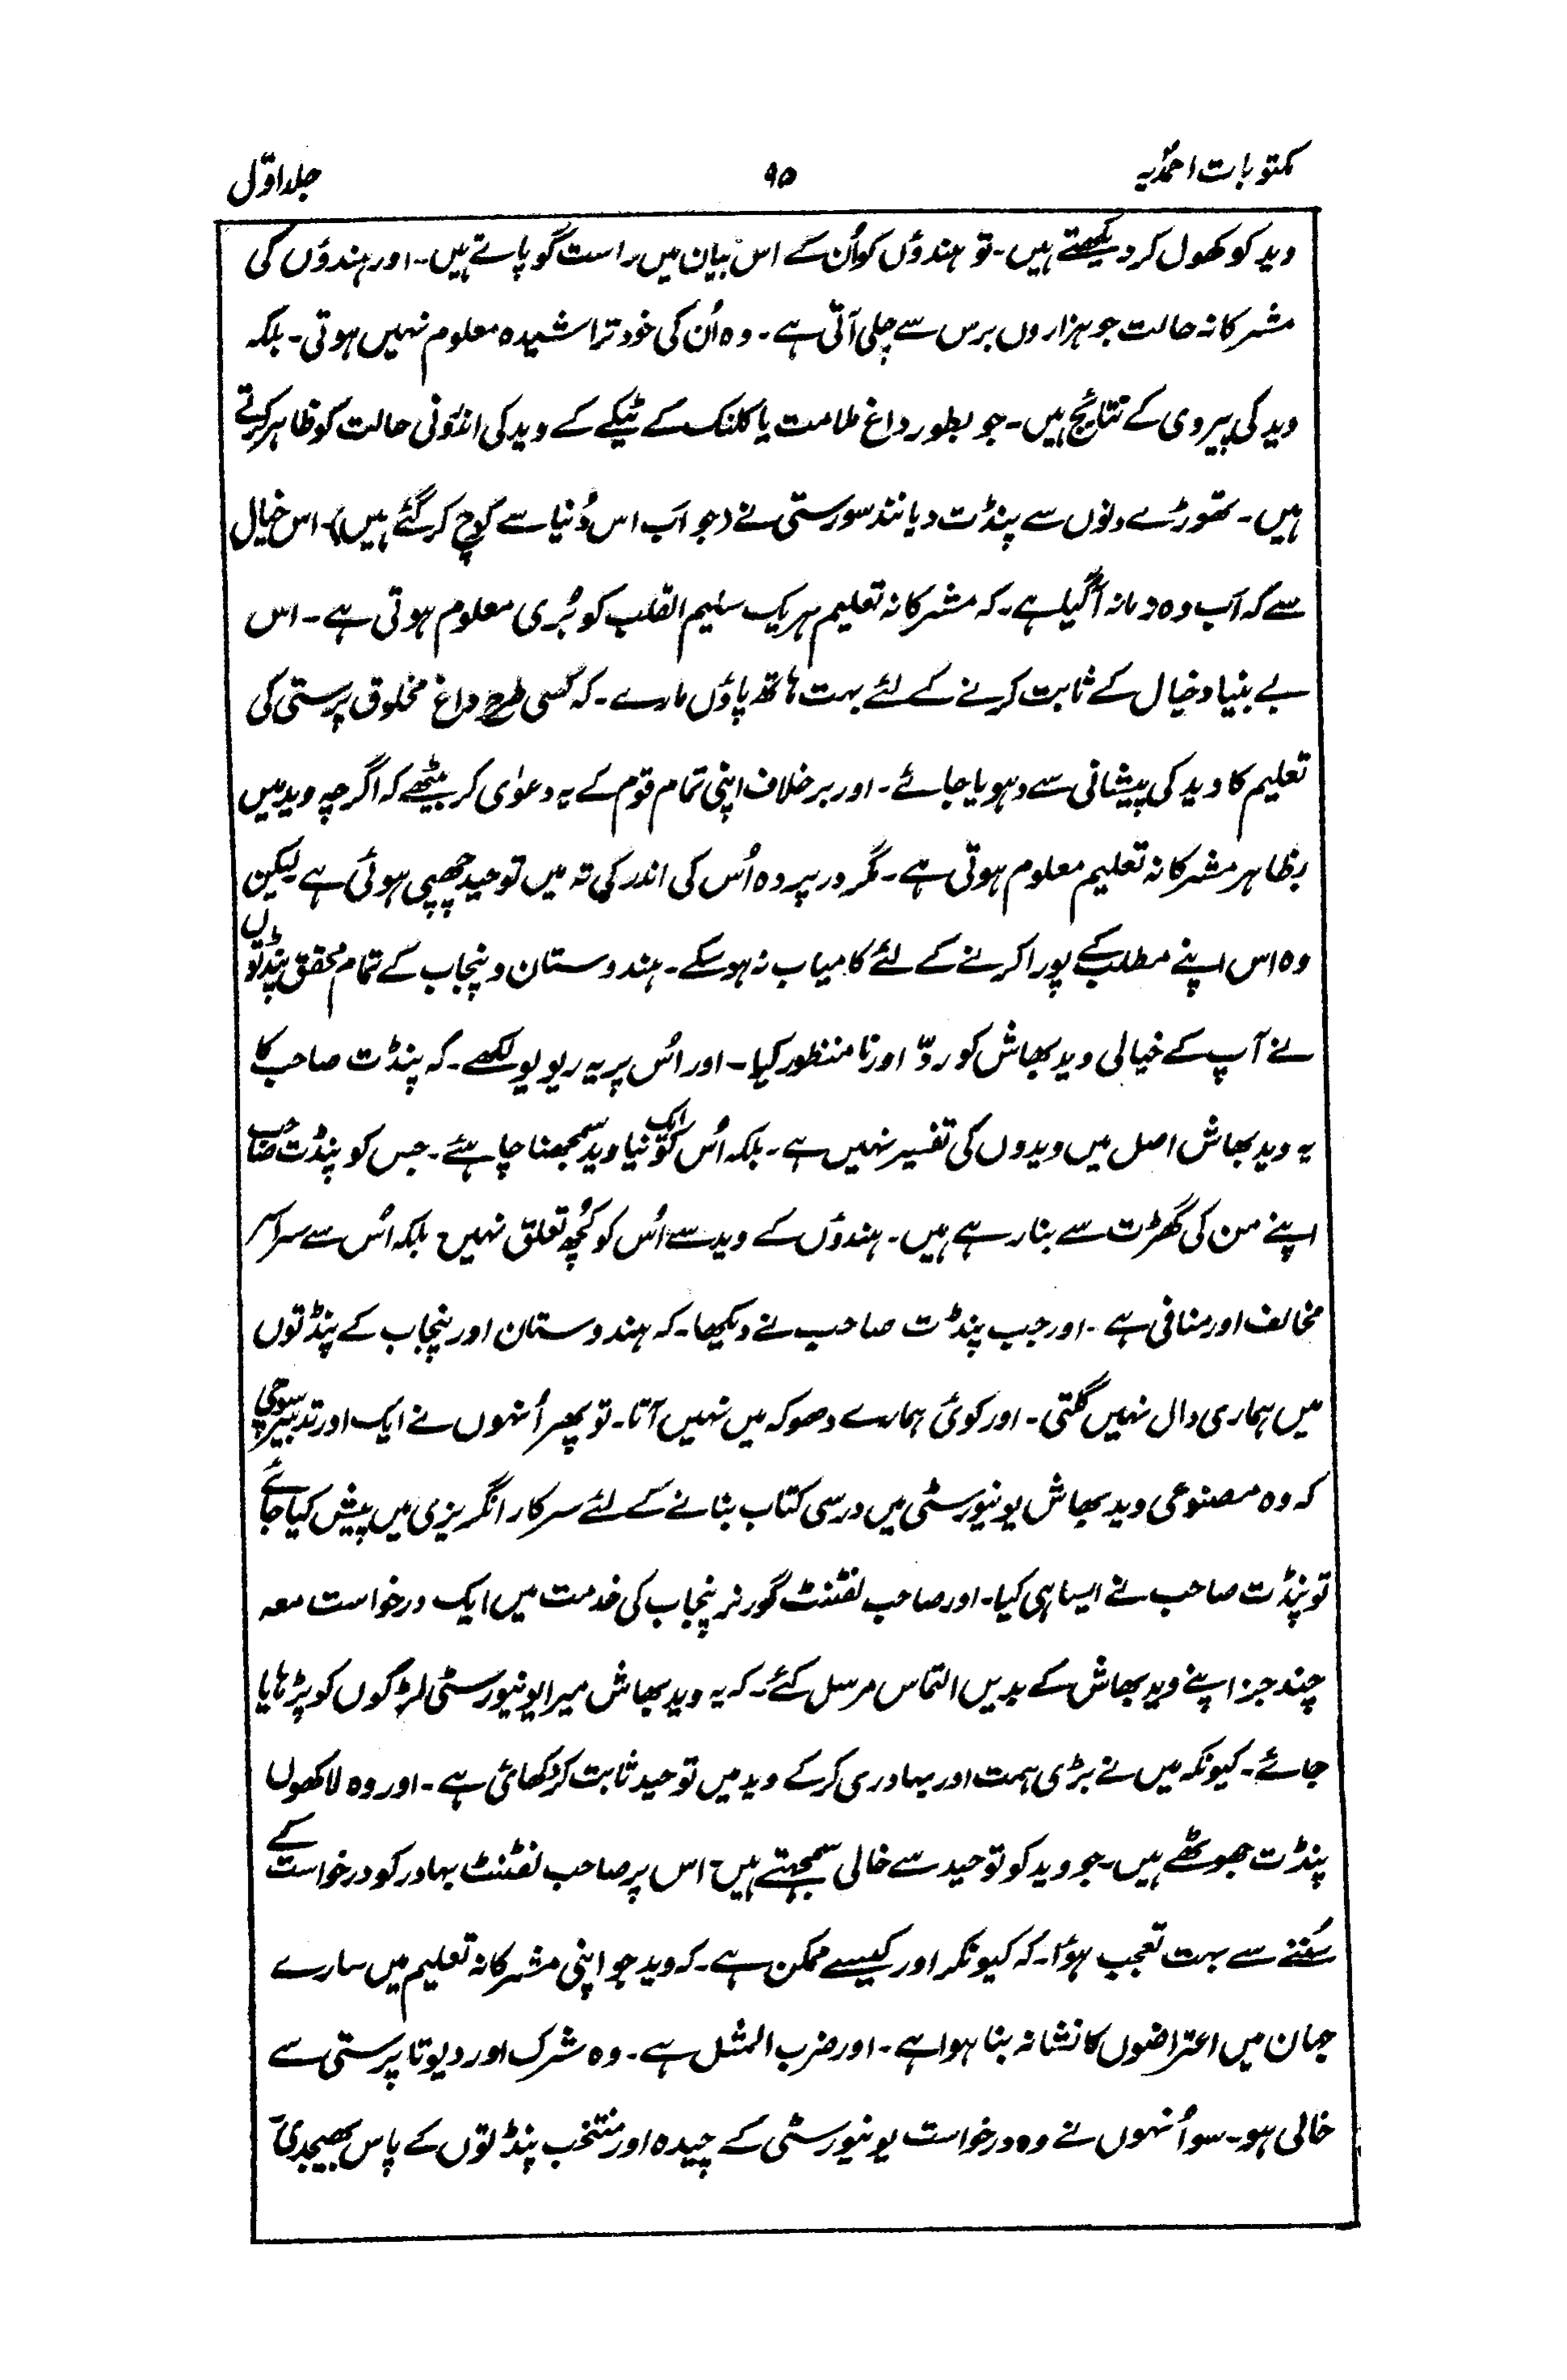 مکتوبات احمدیہ ۹۵ جلد اوّل
وید کو کھول کر دیکھتے ہیں۔ تو ہندوؤں کو اُن کے اس بیان میں راست گو پاتے ہیں۔ اور ہندوؤں کی
مشرکانہ حالت جو ہزاروں برس سے چلی آتی ہے۔ وہ اُن کی خود تراشیدہ معلوم نہیں ہوتی۔ بلکہ
وید کی پیروی کے نتائج ہیں۔ جو بطور داغ ملامت یا کلنک کے ٹیکے کے وید کی اندرونی حالت کو ظاہر کرتے
ہیں۔ تھوڑے دنوں سے پنڈت دیانند سورستی نے (جو اَب اس دُنیا سے کوچ کر گئے ہیں) اس خیال
سے کہ اَب وہ زمانہ آگیا ہے۔ کہ مشرکانہ تعلیم ہریک سلیم القلب کو بُری معلوم ہوتی ہے۔ اس
بے بنیاد خیال کے ثابت کرنے کے لئے بہت ہاتھ پاؤں مارے۔ کہ کسی طرح داغ مخلوق پرستی کی
تعلیم کا وید کی پیشانی سے دہویا جائے۔ اور برخلاف اپنی تمام قوم کے یہ دعوٰی کر بیٹھے کہ اگرچہ وید میں
بظاہر مشرکانہ تعلیم معلوم ہوتی ہے۔ مگر درپردہ اُس کی اندر کی تہ میں توحید چھپی ہوئی ہے لیکن
وہ اس اپنے مطلب کے پورا کرنے کے لئے کامیاب نہ ہوسکے۔ ہندوستان و پنجاب کے تمام محقق پنڈتوں
نے آپ کے خیالی وید بھاش کو ردّ اور نا منظور کیا۔ اور اُس پر یہ ریویو لکھے۔ کہ پنڈت صاحب کا
یہ وید بھاش اصل میں ویدوں کی تفسیر نہیں ہے۔ بلکہ اُس کو تو ایک نیا وید سمجھنا چاہئے۔ جس کو پنڈت صاحب
اپنے من کی گھڑت سے بنا رہے ہیں۔ ہندوؤں کے وید سے اُس کو کُچھ تعلق نہیں۔ بلکہ اُس سے سراسر
مخالف اور منافی ہے۔ اور جب پنڈت صاحب نے دیکھا۔ کہ ہندوستان اور پنجاب کے پنڈتوں
میں ہماری دال نہیں گلتی۔ اور کوئی ہمارے دھوکہ میں نہیں آتا۔ تو پھر اُنہوں نے ایک اور تدبیر سوچی
کہ وہ مصنوعی وید بھاش یونیورسٹی میں درسی کتاب بنانے کے لئے سرکار انگریزی میں پیش کیا جائے
تو پنڈت صاحب نے ایسا ہی کیا۔ اور صاحب لفٹنٹ گورنر پنجاب کی خدمت میں ایک درخواست معہ
چند جز اپنے وید بھاش کے بدیں التماس مرسل کئے۔ کہ یہ وید بھاش میرا یونیورسٹی لڑکوں کو پڑہایا
جائے۔ کیونکہ میں نے بڑی ہمت اور بہادری کرکے وید میں توحید ثابت کر دکھائی ہے۔ اور وہ لاکھوں
پنڈت جھوٹھے ہیں۔ جو وید کو توحید سے خالی سمجہتے ہیں۔ اس پر صاحب لفٹنٹ بہادر کو درخواست کے
سُننے سے بہت تعجب ہوٗا۔ کہ کیونکر اور کیسے ممکن ہے۔ کہ وید جو اپنی مشرکانہ تعلیم میں سارے
جہان میں اعتراضوں کا نشانہ بنا ہوا ہے۔ اور ضرب المثل ہے۔ وہ شرک اور دیوتا پرستی سے
خالی ہو۔ سو اُنہوں نے وہ درخواست یونیورسٹی کے چیدہ اور منتخب پنڈتوں کے پاس بھیجدی۔